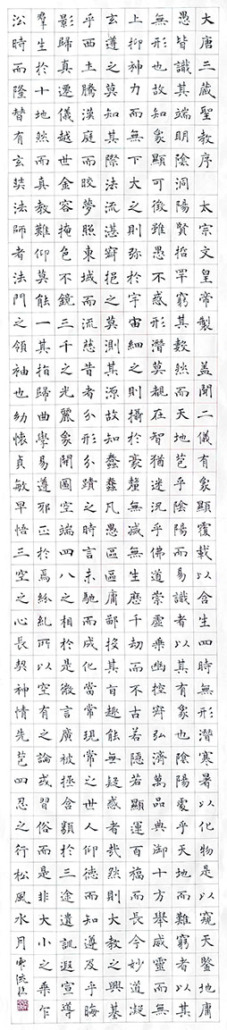 大唐三藏聖教序太宗文皇帝製蓋聞二儀有象顯覆載以含生四時無形潛寒暑以化物是以窺天鑒地庸
愚皆識其端明陰洞陽賢哲罕窮其數然而天地苞乎陰陽而易識者以其有象也陰陽處乎天地而難窮者以其
無形也故知象顯可徵雖愚不惑形潛莫覩在智猶迷況乎佛道崇虛乘幽控寂弘濟萬品典御十方舉威靈而無
上抑神力而無下大之則彌於宇宙細之則攝於毫釐無滅無生歷千劫而不古若隱若顯運百福而長今妙道凝
玄遵之莫知其際法流湛寂挹之莫測其源故知蠢蠢凡愚區區庸鄙投其旨趣能無疑惑者哉然則大教之興基
乎西土騰漢庭而皎夢照東域而流慈昔者分形分蹟之時言未馳而成化當常現常之世人仰德而知遵及乎晦
影歸真遷儀越世金容掩色不鏡三千之光麗象開圖空端四八之相於是微言廣被拯含類於三途遺訓遐宣導
羣生於十地然而真教難仰莫能一其指歸曲學易遵邪正於焉紛糾所以空有之論或習俗而是非大小之乘乍
沿時而隆替有玄奘法師者法門之領袖也幼懷貞敏早悟三空之心長契神情先苞四忍之行松風水月